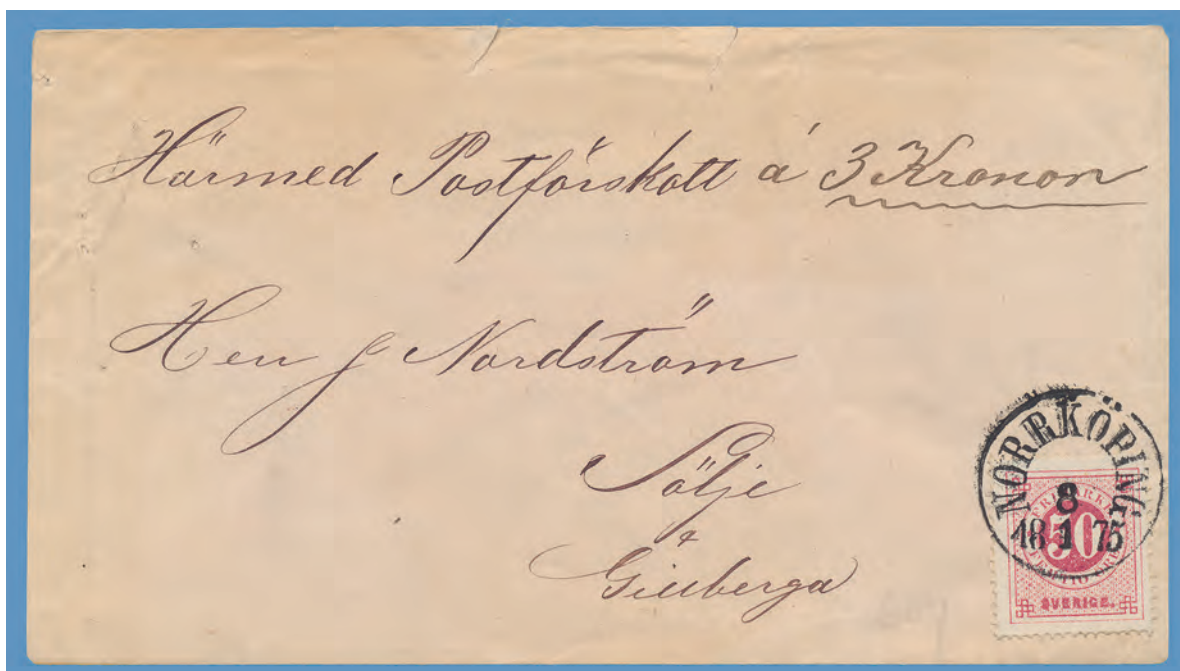 Härmed Postförskott á 3 Kronor
Herr J Nordström
Sölje
&
Gillberga
NORRKÖPING
8
18 1 75
FRIMÄRKE
50
FEMTIO ÖRE
SVERIGE.